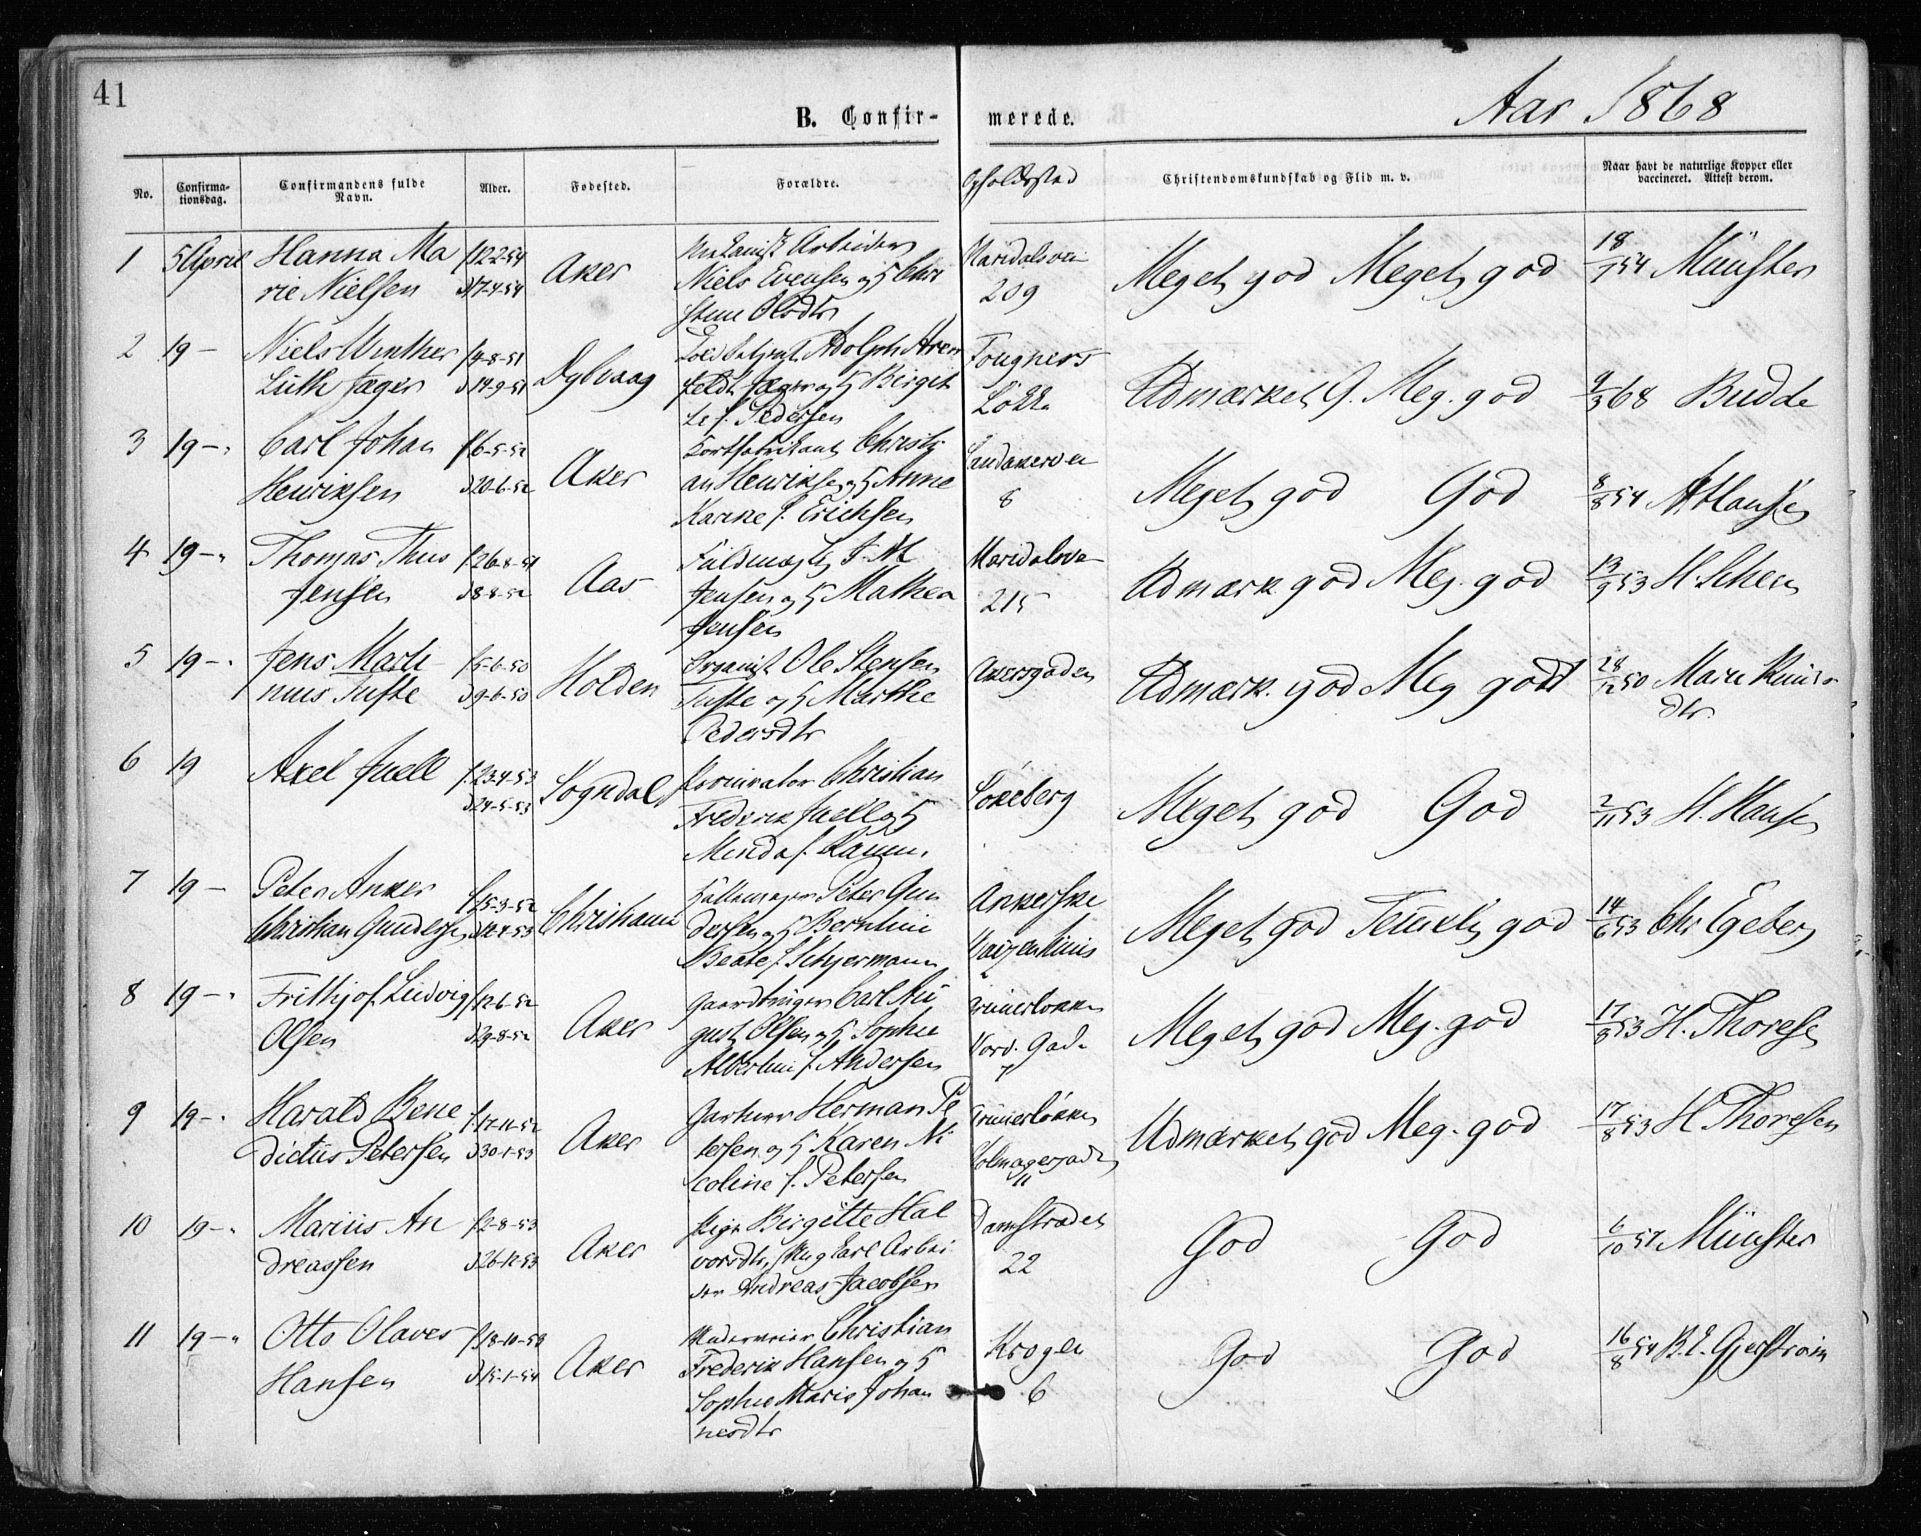 41
B. Confir-
merede.
Aar 1868
No.
Confirma-
tionsdag.
Confirmandens fulde
Navn.
Alder.
Fødested.
Forældre.
Opholdssted
Christendomskundskab og Flid m. v.
Naar havt de naturlige Kopper eller
vaccineret. Attest derom.
1 5 April Hanna Ma f 12-2-54 Aker Arbeider Maridalsvei Meget god Meget god 18/7 54 Münster
rie Nielsen d 17-4-54 Niels Evensen og H Chri 209
stine Olsdtr
2 19 - Niels Winther f 4-8-51 Dybvaag Adolph Aren Fougners Udmærket G. Meg. god 9/3 68 Budde
Luth Jæger d 14-9-51 feldt Jæger og H Birgit Løkke
te f. Pedersen
3 19 - Carl Johan f 6-5-52 Aker Kortfabrikant Christi Sandakervei Meget god God 8/8 54 A. Hansen
Henriksen d 20-6-52 an Henriksen og H Anne 8
Karine f. Erichsen
4 19 - Thomas Thus f. 26-8-51 Aas Fuldmægtig J. M. Maridalsvei Udmærk god Meg. god 13/9 53 H. Schen
Jensen d 8-8-52 Jensen og H Mathea 215
Jensen
5 19 - Jens Marti f 5-6-50 Holden Organist Ole Stensen Akersgaden Udmærk. god Meg godt 28/12 50 Maru
nius Tufte d 9-6-50 Tufte og H Marthe dtr.
Pedersdtr
6 19 Axel Juell f. 23-4-53 Sogndal Procurator Christian Løkeberg Meget god God 2/11 53 H. Hansen
d 24-5-53 Frederik Juell og H
Minda f.
7 19 - Peter Anker f 5-3-52 Christiania Peter Gun Ankerske Meget god Temmelig god 14/6 53 Chr Egeberg
Christian Gundersen d 12-4-53 dersen og H Berntine Waisenhuus
Beate f. Schjermann
8 19 - Frithjof Ludvig f 12-6-52 Aker Gaardbruger Carl Au Grünerløkken Meget god Meg. god 17/8 53 H. Thoresen
Olsen d 29-8-52 gust Olsen og H Sophie Nord. Gade
Albertine f. Andersen 7
9 19 - Harald Bene f. 17-11-52 Aker Gartner Herman Pe Grünerløkken Udmærket god Meg. god 17/8 53 H. Thoresen
dictus Petersen d 30-1-53 tersen og H Karen Ni Volmagergaden
coline f. Petersen 11
10 19 - Marius An f 2-8-53 Aker Pige Birgitte Hal Damstrædet God God 6/10 57 Münster
dreassen d 26-12-53 vorsdtr, Ung Karl Arbei 22
der Andreas Jacobsen
11 19 - Otto Olaves f 18-10-53 Aker Christian Krogen God God 16/8 54 B. E. Gjerstrøm
Hansen d 15-1-54 Frederik Hansen og H 6
Sophie Marie Johan
nesdtr